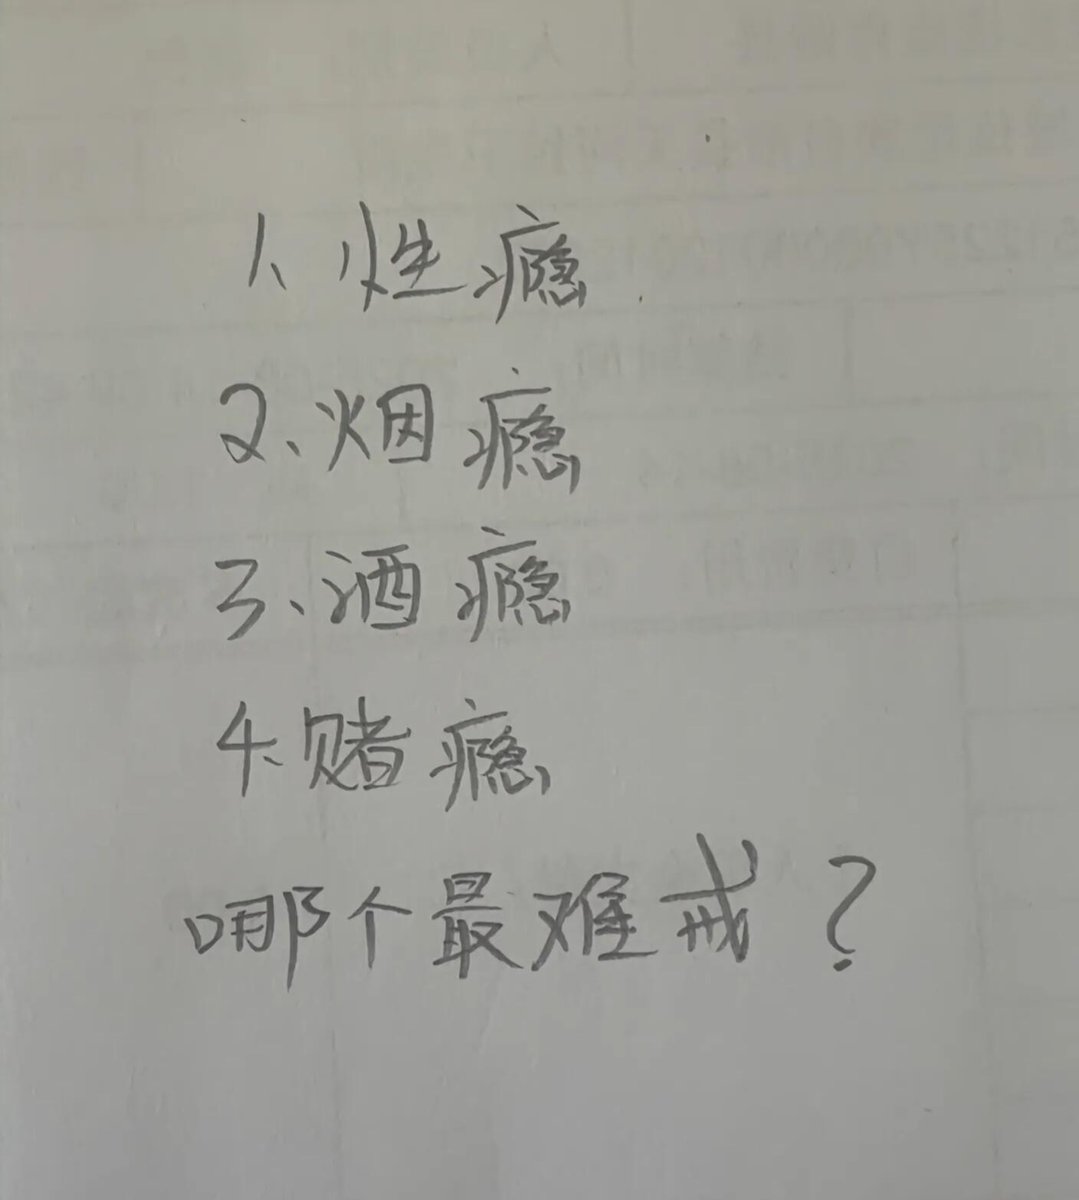 1、性瘾
2、烟瘾
3、酒瘾
4、赌瘾
哪个最难戒？